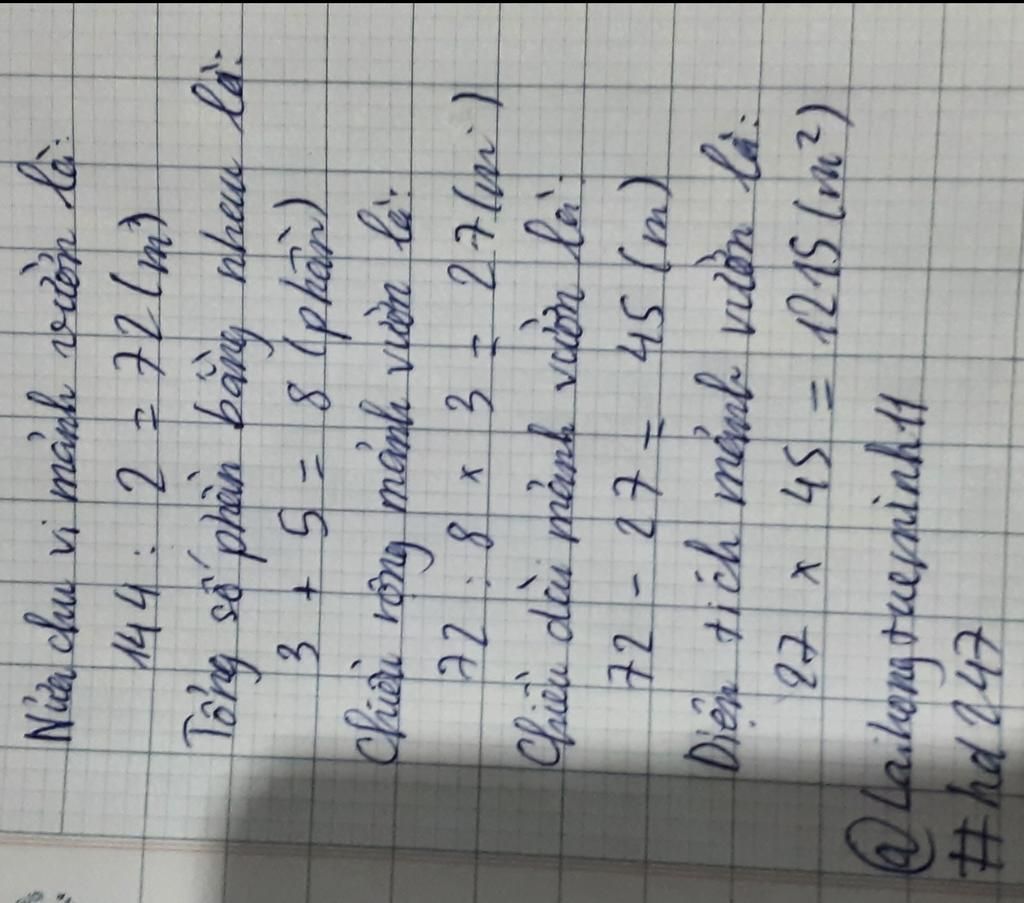 Nửa chu vi mảnh vườn là:
144 : 2 = 72 (m)
Tổng số phần bằng nhau là:
3 + 5 = 8 (phần)
Chiều rộng mảnh vườn là:
72 : 8 x 3 = 27 (m)
Chiều dài mảnh vườn là:
72 - 27 = 45 (m)
Diện tích mảnh vườn là:
27 x 45 = 1215 (m²)
@Laihongtueminh11
#hd247